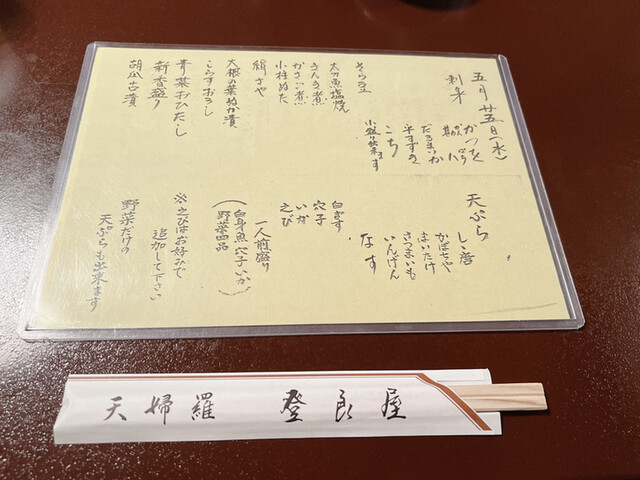 五月廿五日(水)
刺身
かつを
かんぱち
だるまいか
平すずき
こち
小盛り出来ます
そら豆
太刀魚塩焼
きんき煮
かさご煮
小柱ぬた
絹さや
大根の葉ぬか漬
しらすおろし
青菜おひたし
新香盛り
胡瓜古漬
天ぷら
しし唐
かぼちゃ
まいたけ
さつまいも
いんげん
なす
白ぎす
穴子
いか
えび
一人前盛り
(白身魚穴子いか
野菜四品)
※えびはお好みで
追加して下さい
野菜だけの
天ぷらも出来ます
天婦羅 登良屋